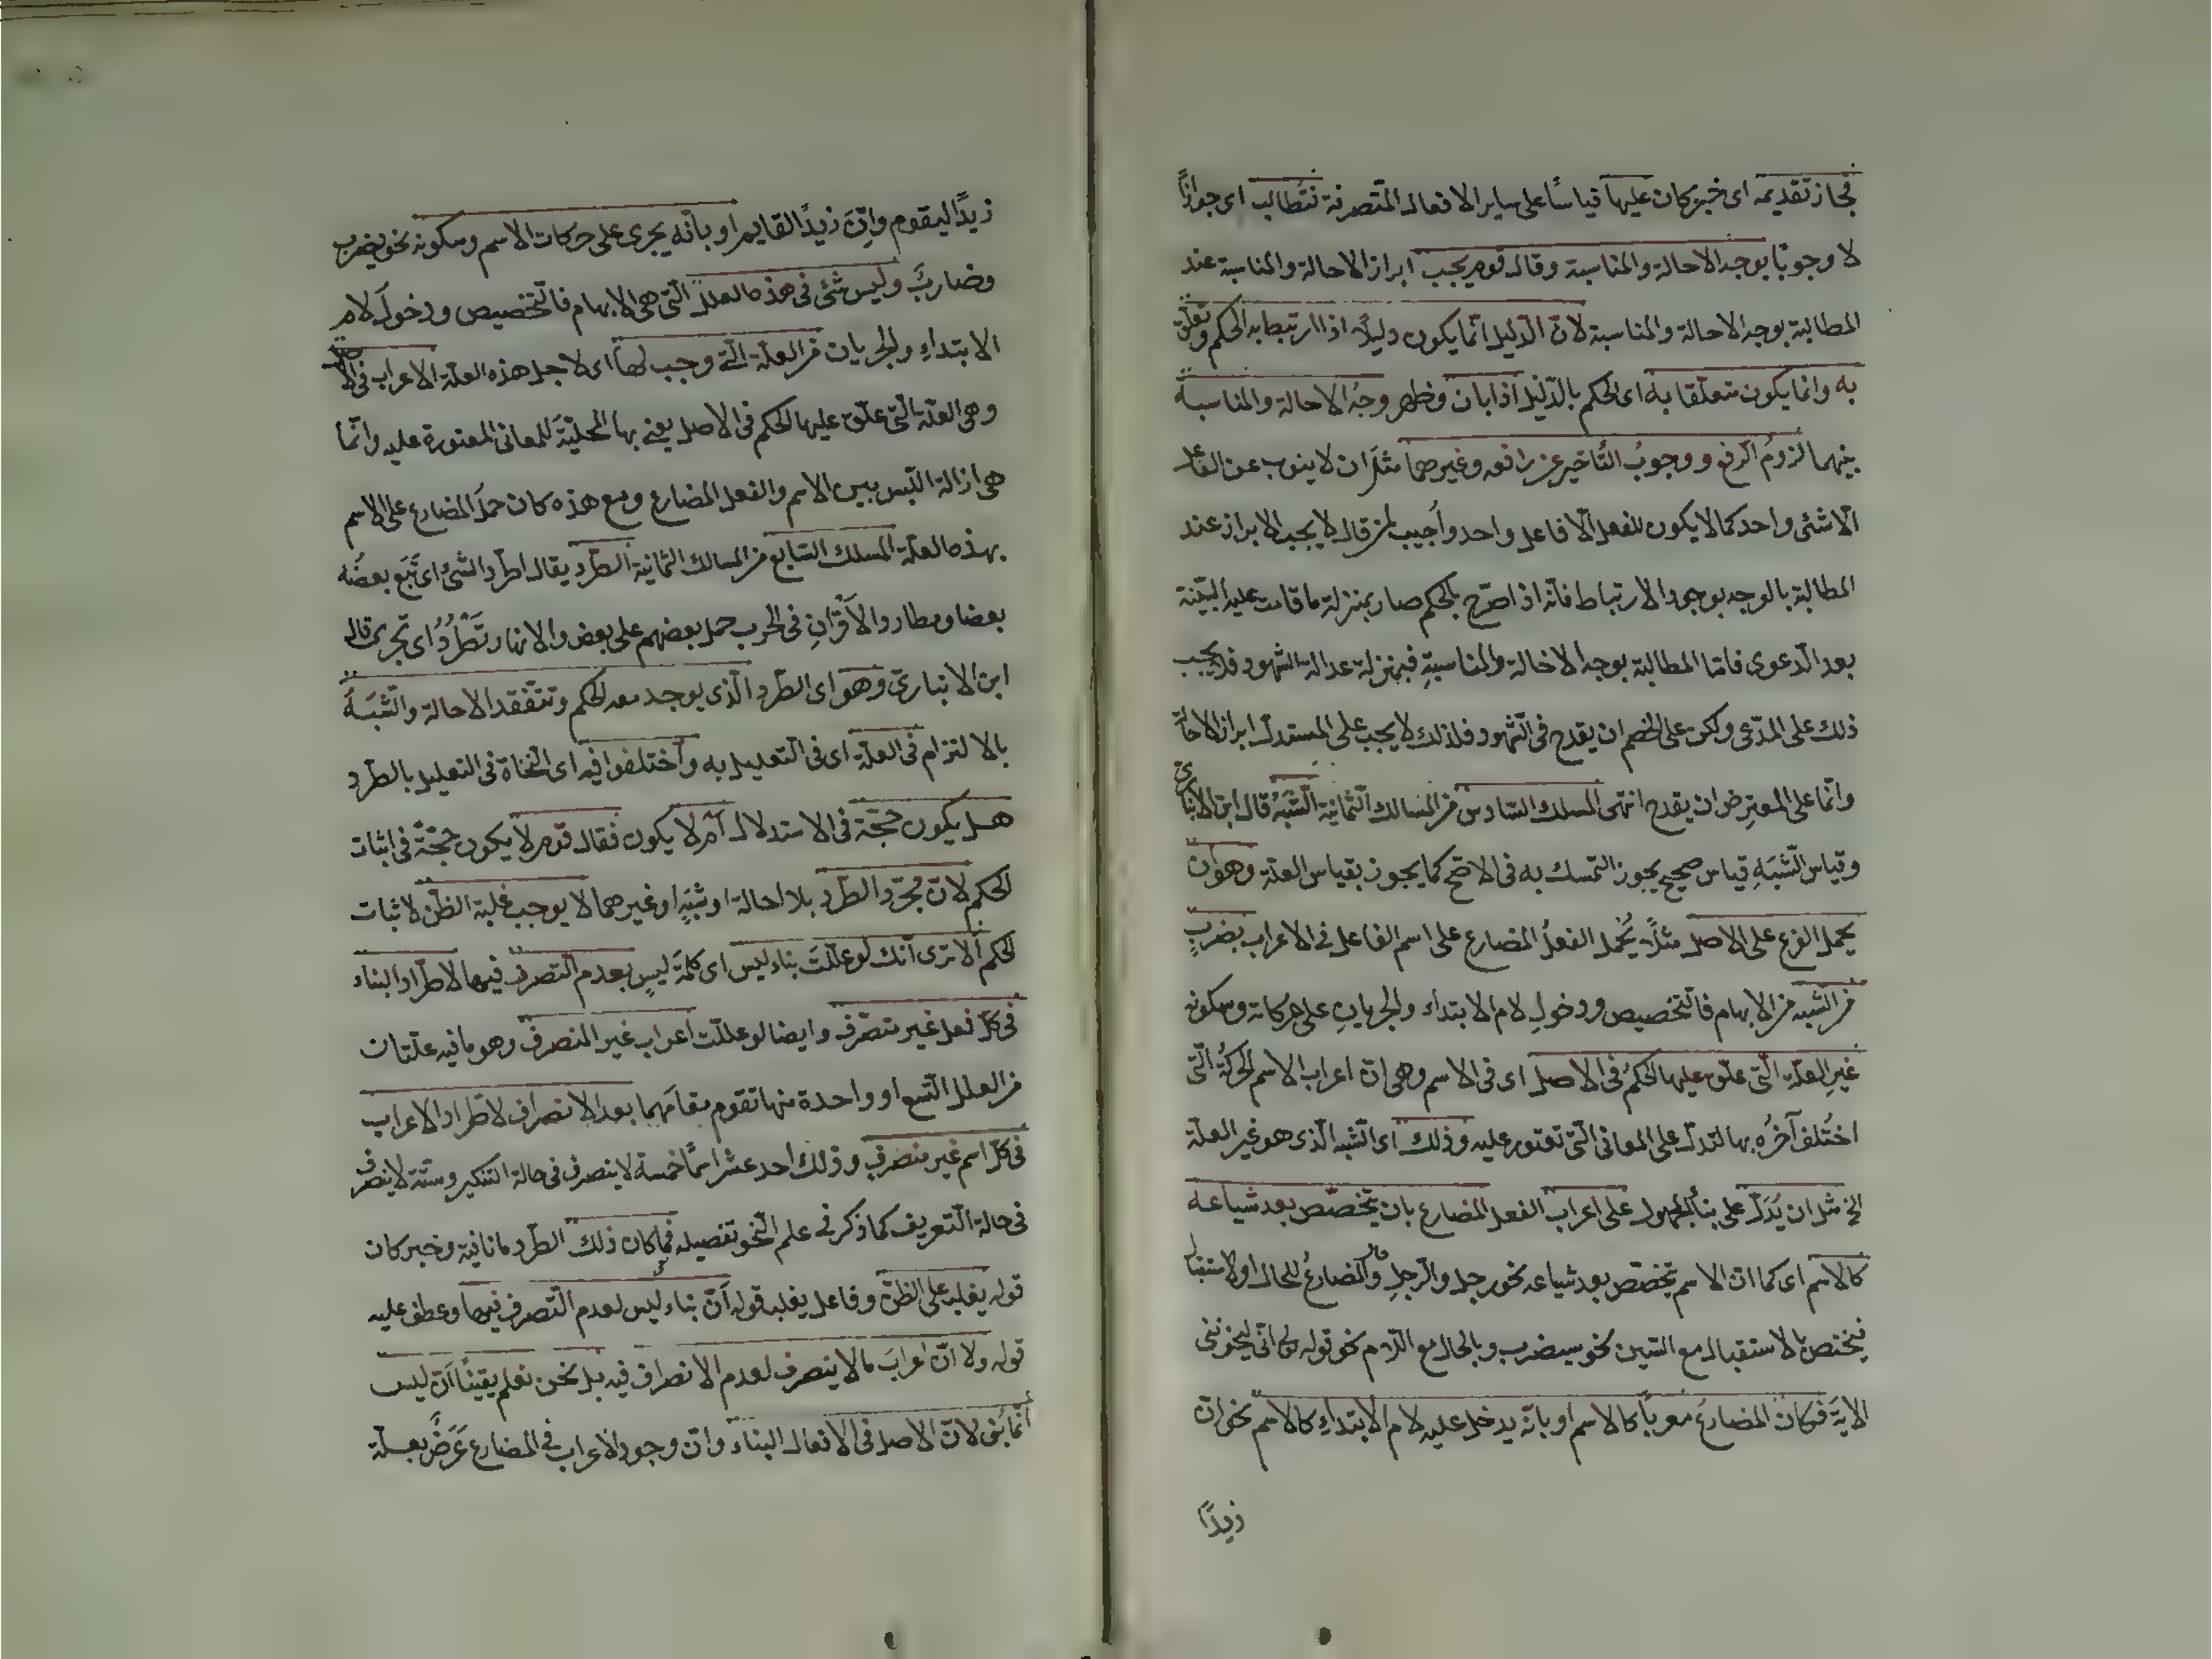 فجاز تقديمه اى خبر كان عليها قياسًا على ساير الافعال المتصرفة فتُطالب اى جوازًا
لا وجوبًا بوجه الاحالة والمناسبة وقال قوم يجب ابراز الاحالة والمناسبة عند
المطالبة بوجه الاحالة والمناسبة لانّ الدليل انّما يكون دليلًا اذا ارتبط به الحكم وتعلّق
به وانما يكون متعلّقا به اى الحكم بالدّليل اذا بان وظهر وجهُ الاحالة والمناسبة
بينهما لزومُ الرفع ووجوبُ التأخير عن رافعه وغيرهما مثلَ ان لا ينوب عن الفاعل
الّا شئى واحد كما لا يكون للفعل الّا فاعل واحد واُجيب لمن قال لا يجب الابراز عند
المطالبة بالوجه بوجود الارتباط فانّه اذا صرّح بالحكم صار بمنزلة ما قامت عليه البيّنة
بعد الدّعوى فامّا المطالبة بوجه الاخالة والمناسبةِ فبمنزلة عدالة الشهود فلا يجب
ذلك على المدّعى ولكن على الخصم ان يقدح فى الشّهود فلذلك لا يجب على المستدلّ ابراز الاحالة
وانّما على المعترِض ان يقدح انتهى المسلك السّادس من المسالك الثّمانية الشَّبَهُ قال ابن الانبارى
وقياس الشَّبَهِ قياس صحيح يجوز التمسك به فى الاصحّ كما يجوز بقياس العلة وهو ان
يحمل الفرع على الاصل مثلًا يُحمل الفعلُ المضارع على اسم الفاعل فى الاعراب بضربٍ
من الشّبه من الابهام فالتّخصيص ودخولِ لام الابتداء والجريانِ على حركاته وسكونه
غيرِ العلّة الّتى علّق عليها الحكمُ فى الاصل اى فى الاسم وهى انّ اعراب الاسم الحركةُ الّتى
اختُلف آخرُه بها لتدلّ على المعانى الّتى تعتور عليه وذلك اى الشّبه الّذى هو غير العلّة
الخ مثل ان يُدَلّ على بنأ المجهول على اعراب الفعل المضارع بان يتخصّص بعد شياعه
كالاسم اى كما انّ الاسم يتخصّص بعد شياعه نحو رجل والرّجلِ والمضارعُ للحال او الاستقبال
فيختص بالاستقبال مع السّين نحو سيضرب وبالحال مع اللّام نحو قوله تع انّى ليحزننى
الايَة فكان المضارعُ معربًا كالاسم او بانّه يدخل عليه لام الابتداءِ كالاسم نحو انّ
زيدًا
زيدًا ليقوم وانّ زيدًا لقايم او بانّه يجرى على حركات الاسم وسكونه نحو يضرب
وضاربٌ وليس شئ فى هذه العلل الّتى هى الابهام فالتّخصيص ودخول لام
الابتداءِ والجريان من العلّة الّتى وجب لها اى لاجل هذه العلّة الاعراب فى الاصل
وهى العلّة الّتى علّق عليها الحكم فى الاصل يعنى بها المحلّيّة للمعانى المعتورة عليه وانّما
هى ازالة اللّبس بين الاسم والفعل المضارع ومع هذه كان حملُ المضارع على الاسم
بهذه العلّة المسلك السّابع من المسالك الثّمانية الطّرد يقال اطّرد الشئ اى تَبَع بعضُه
بعضا ومطاردة الاَقْرانِ فى الحرب حمل بعضهم على بعض والانهار تَطَّرِدُ اى تجرى قال
ابن الانبارىّ وهو اى الطّرد الّذى يوجد معه الحكم وتتفقد الاحالة والشَّبَهُ
بالالتزام فى العلّة اى فى التّعليل به واختلفوا فيه اى النّحاة فى التعليل بالطّرد
هل يكون حجّة فى الاستدلال اَم لا يكون فقال قوم لا يكون حجّةً فى اثبات
الحكم لانّ مجرّد الطّرد بلا احالة او شبَهٍ او غيرهما لا يوجب غلبة الظّن لاثبات
الحكم الا ترى انّك لو علّلتَ بناء ليس اى كلمةَ ليس بعدم التّصرف فيها لاطّراد البناء
فى كلّ فعل غير متصرّف وايضا لو علّلت اعراب غير المنصرف وهو ما فيه علّتان
من العلل التّسع او واحدة منها تقوم مقامَهما بعدم الانصراف لاطّراد الاعراب
فى كلّ اسم غير منصرف وذلك احد عشر اسمًا خمسة لا ينصرف فى حالة التنكير وستّة لا ينصرف
فى حالة التّعريف كما ذكر فى علم النّحو تفصيله فما كان ذلك الطّرد ما نافية وخبر كان
قوله يغلب على الظنّ وفاعل يغلب قوله اَنّ بناء ليس لعدم التّصرف فيها وعطف عليه
قوله ولا انّ اعرابَ ما لا ينصرف لعدم الانصراف فيه بل نحن نعلم يقينًا اَنّ ليس
انّما بُنى لانّ الاصل فى الافعال البناءُ وانّ وجود الاعراب فى المضارع عَرَضٌ بعلّة